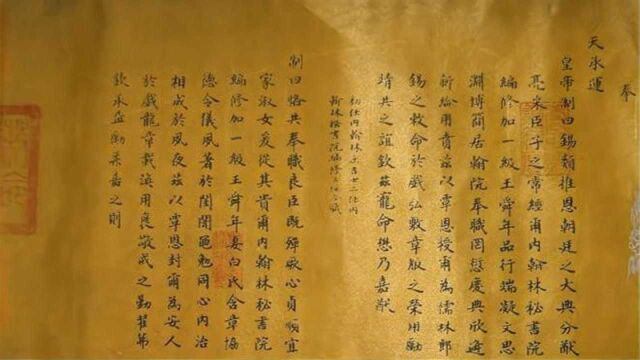 奉
天承運
皇帝制曰錫類推恩朝廷之大典分猷
亮采臣子之常經爾內翰林秘書院
編修加一級王舜年品行端凝文思
淵博簡居翰院奉職罔愆慶典欣逢
新綸用賁茲以覃恩授爾為儒林郎
錫之敕命於戲弘敷章服之榮用勵
靖共之誼欽茲寵命懋乃嘉猷
初任內翰林庶吉士二任內
翰林秘書院編修
制曰恪共奉職良臣既殫厥心貞順宜
家淑女爰從其貴爾內翰林秘書院
編修加一級王舜年妻白氏含章協
德令儀夙著於閨閫黽勉同心內治
相成於夙夜茲以覃恩封爾為安人
於戲龍章載渙用褒敬戒之勤翟茀
欽承益勵柔嘉之則